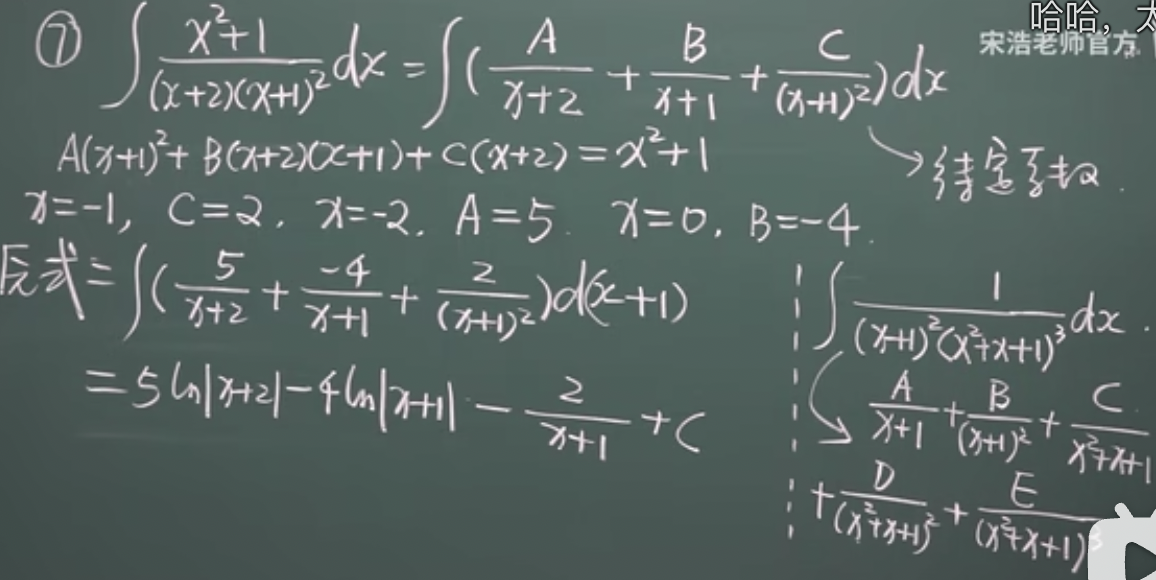 哈哈，太
宋浩老师官方
⑦ ∫ (x²+1)/((x+2)(x+1)²) dx = ∫( A/(x+2) + B/(x+1) + C/(x+1)² )dx
A(x+1)² + B(x+2)(x+1) + C(x+2) = x²+1
→ 待定系数.
x=-1, C=2. x=-2. A=5. x=0. B=-4.
原式 = ∫( 5/(x+2) + -4/(x+1) + 2/(x+1)² )d(x+1)
= 5 ln|x+2| - 4 ln|x+1| - 2/(x+1) + C
∫ 1/((x+1)²(x²+x+1)³) dx.
A/(x+1) + B/(x+1)² + C/(x²+x+1)
+ D/(x²+x+1)² + E/(x²+x+1)³